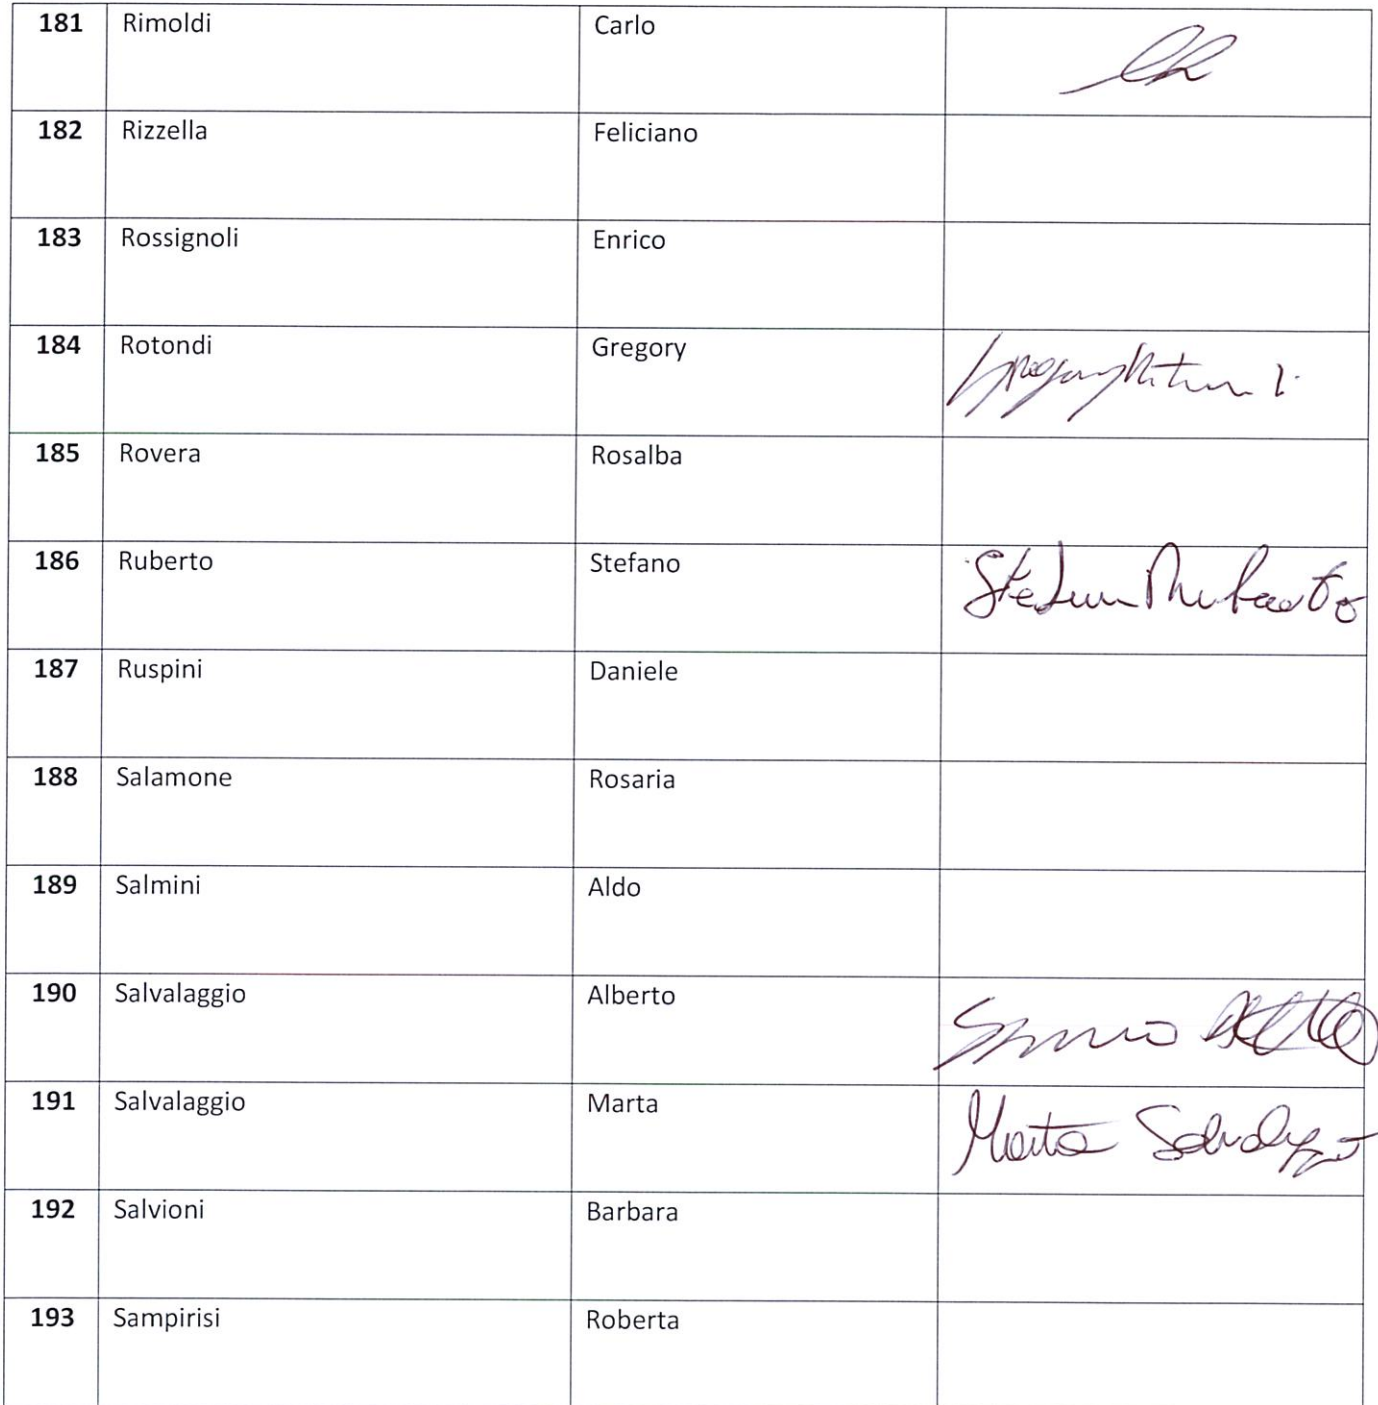 181 Rimoldi Carlo
182 Rizzella Feliciano
183 Rossignoli Enrico
184 Rotondi Gregory
185 Rovera Rosalba
186 Ruberto Stefano Stefano Ruberto
187 Ruspini Daniele
188 Salamone Rosaria
189 Salmini Aldo
190 Salvalaggio Alberto
191 Salvalaggio Marta Marta
192 Salvioni Barbara
193 Sampirisi Roberta